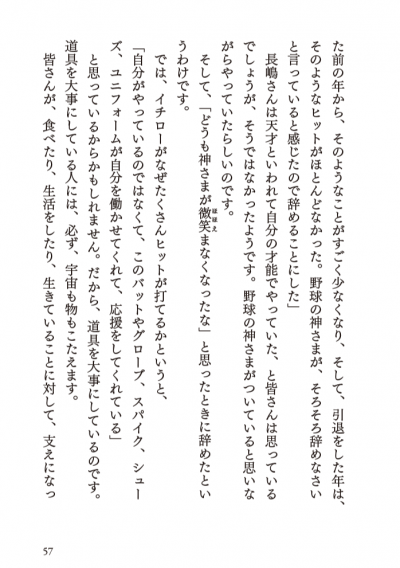 た前の年から、そのようなことがすごく少なくなり、そして、引退をした年は、
そのようなヒットがほとんどなかった。野球の神さまが、そろそろ辞めなさい
と言っていると感じたので辞めることにした」
長嶋さんは天才といわれて自分の才能でやっていた、と皆さんは思っている
でしょうが、そうではなかったようです。野球の神さまがついていると思いな
がらやっていたらしいのです。
そして、「どうも神さまが微笑まなくなったな」と思ったときに辞めたとい
うわけです。
では、イチローがなぜたくさんヒットが打てるかというと、
「自分がやっているのではなくて、このバットやグローブ、スパイク、シュー
ズ、ユニフォームが自分を働かせてくれて、応援をしてくれている」
と思っているからかもしれません。だから、道具を大事にしているのです。
道具を大事にしている人には、必ず、宇宙も物もこたえます。
皆さんが、食べたり、生活をしたり、生きていることに対して、支えになっ
57